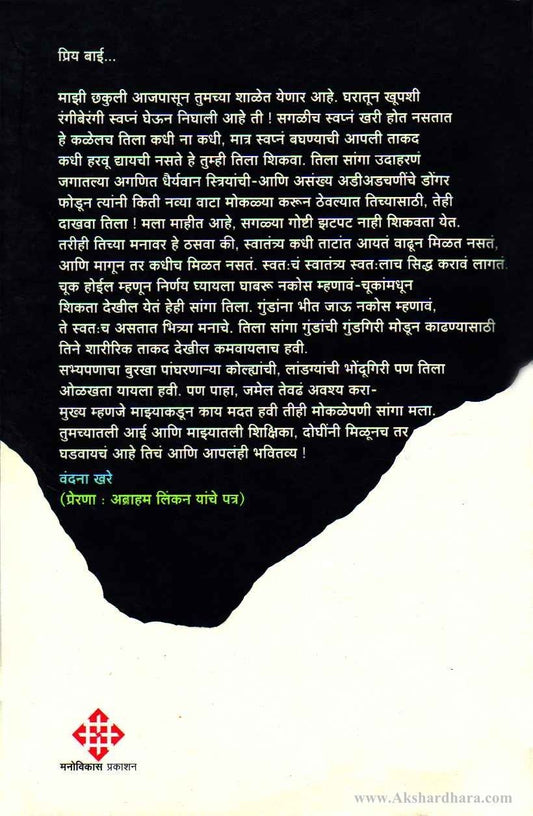 प्रिय बाई...
माझी छकुली आजपासून तुमच्या शाळेत येणार आहे. घरातून खूपशी
रंगीबेरंगी स्वप्नं घेऊन निघाली आहे ती ! सगळीच स्वप्नं खरी होत नसतात
हे कळेलच तिला कधी ना कधी, मात्र स्वप्नं बघण्याची आपली ताकद
कधी हरवू द्यायची नसते हे तुम्ही तिला शिकवा. तिला सांगा उदाहरणं
जगातल्या अगणित धैर्यवान स्त्रियांची-आणि असंख्य अडीअडचणींचे डोंगर
फोडून त्यांनी किती नव्या वाटा मोकळ्या करून ठेवल्यात तिच्यासाठी, तेही
दाखवा तिला ! मला माहीत आहे, सगळ्या गोष्टी झटपट नाही शिकवता येत.
तरीही तिच्या मनावर हे ठसवा की, स्वातंत्र्य कधी ताटांत आयतं वाढून मिळत नसतं,
आणि मागून तर कधीच मिळत नसतं. स्वत:चं स्वातंत्र्य स्वत:लाच सिद्ध करावं लागतं.
चूक होईल म्हणून निर्णय घ्यायला घाबरू नकोस म्हणावं-चूकांमधून
शिकता देखील येतं हेही सांगा तिला. गुंडांना भीत जाऊ नकोस म्हणावं,
ते स्वत:च असतात भित्र्या मनाचे. तिला सांगा गुंडांची गुंडगिरी मोडून काढण्यासाठी
तिने शारीरिक ताकद देखील कमवायलाच हवी.
सभ्यपणाचा बुरखा पांघरणाऱ्या कोल्ह्यांची, लांडग्यांची भोंदूगिरी पण तिला
ओळखता यायला हवी. पण पाहा, जमेल तेवढं अवश्य करा-
मुख्य म्हणजे माझ्याकडून काय मदत हवी तीही मोकळेपणी सांगा मला.
तुमच्यातली आई आणि माझ्यातली शिक्षिका, दोघींनी मिळूनच तर
घडवायचं आहे तिचं आणि आपलंही भवितव्य !
वंदना खरे
(प्रेरणा : अब्राहम लिंकन यांचे पत्र)
मनोविकास प्रकाशन
www.Akshardhara.com